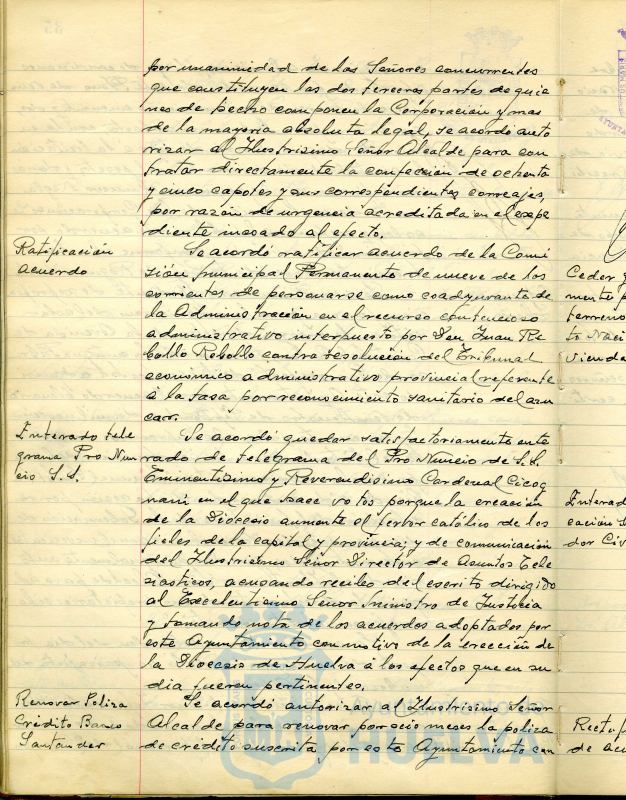 por unanimidad de los Señores concurrentes
que constituyen las dos terceras partes de quie
nes de hecho componen la Corporación y mas
de la mayoria absoluta legal, se acordó auto
rizar al Ilustrisimo Señor Alcalde para con
tratar directamente la confección de ochenta
y cinco capotes y sus correspondientes correajes,
por razón de urgencia acreditada en el expe
diente incoado al efecto.
Ratificación
acuerdo
Se acordó ratificar acuerdo de la Comi
sión municipal Permanente de nueve de los
corrientes de personarse como coadyuvante de
la Administración en el recurso contencioso
administrativo interpuesto por Don Juan Re
bollo Rebollo contra resolución del Tribunal
económico administrativo provincial referente
à la tasa por reconocimiento sanitario del azu
car.
Enterado tele
grama Pro Nun
cio S.S.
Se acordó quedar satisfactoriamente ente
rado de telegrama del Pro Nuncio de S.S.
Eminentisimo y Reverendisimo Cardenal Cicog
nani en el que hace votos porque la creación
de la Diocesis aumente el fervor católico de los
fieles de la capital y provincia; y de comunicación
del Ilustrisimo Señor Director de Asuntos Ecle
siasticos, acusando recibo del escrito dirigido
al Excelentisimo Señor Ministro de Justicia
y tomando nota de los acuerdos adoptados por
este Ayuntamiento con motivo de la erección de
la Diocesis de Huelva à los efectos que en su
dia fueren pertinentes.
Renovar Poliza
Crédito Banco
Santander
Se acordó autorizar al Ilustrisimo Señor
Alcalde para renovar por seis meses la poliza
de crédito suscrita por este Ayuntamiento con
Ceder y
mente p
terreno
to Naci
vienda
Enterad
cación
dor Civ
Rectif
de acu
HUELVA